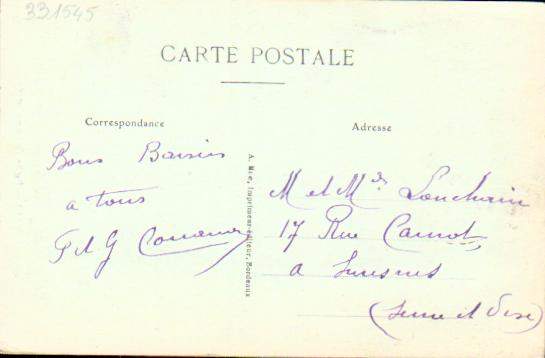 331545
CARTE POSTALE
Correspondance
Adresse
Bons Baisers
a tous
P et G
A. Mie, Imprimeur-éditeur, Bordeaux
M et Mde Louchain
17 Rue Carnot
a Suresnes
(Seine et Oise)